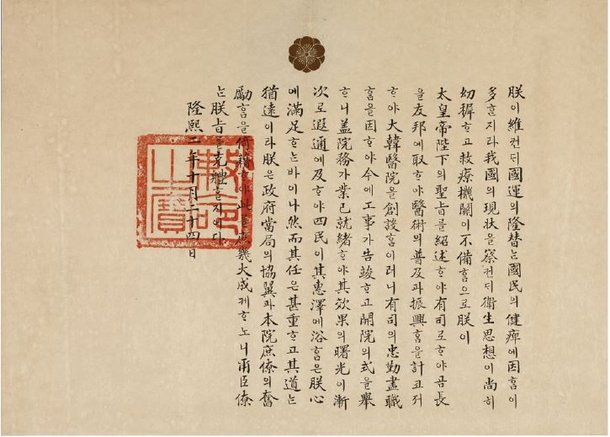 朕이維컨ᄃᆡ國運의隆替ᄂᆞᆫ國民의健痺에因ᄒᆞᆷ이
多ᄒᆞᆫ지라我國의現狀을察컨ᄃᆡ衛生思想이尙히
幼穉ᄒᆞ고救療機關이不備ᄒᆞᆷ으로朕이
太皇帝陛下의聖旨를紹述ᄒᆞ야有司로ᄒᆞ야곰長
을友邦에取ᄒᆞ야醫術의普及과振興ᄒᆞᆷ을計코저
ᄒᆞ야大韓醫院을創設ᄒᆞᆷ이러니有司의忠勤盡職
ᄒᆞᆷ을因ᄒᆞ야今에工事가告竣ᄒᆞ고開院의式을擧
ᄒᆞ니盖院務가業已就緖ᄒᆞ야其效果의曙光이漸
次로遐通에及ᄒᆞ야四民이其惠澤에浴ᄒᆞᆷ은朕心
에滿足ᄒᆞᄂᆞᆫ바이나然而其任은甚重ᄒᆞ고其道ᄂᆞᆫ
猶遠이라朕은政府當局의協翼과本院庶僚의奮
勵ᄒᆞᆷ을倚賴ᄒᆞ야此 庶幾大成케ᄒᆞ노니爾臣僚
ᄂᆞᆫ朕旨를克體ᄒᆞᆯ지어다
隆熙二年十月二十四日
勅命之寶